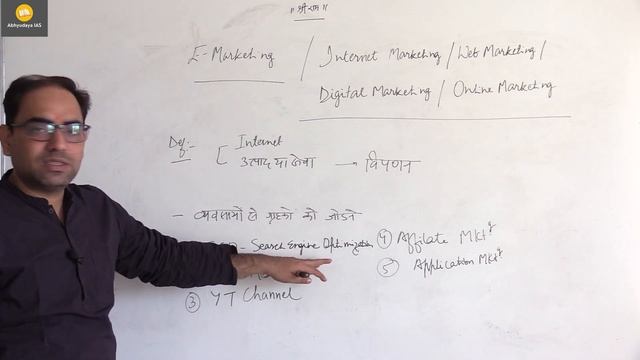 Abhyudaya IAS
॥ श्री राम ॥
E-Marketing / Internet Marketing / Web Marketing /
Digital Marketing / Online Marketing
Def:- [ Internet
उत्पाद या सेवा → विपणन
- व्यवसायों से ग्राहकों को जोड़ने
- Search Engine Optimization
③ YT Channel
④ Affilate Mktg
⑤ Application Mktg